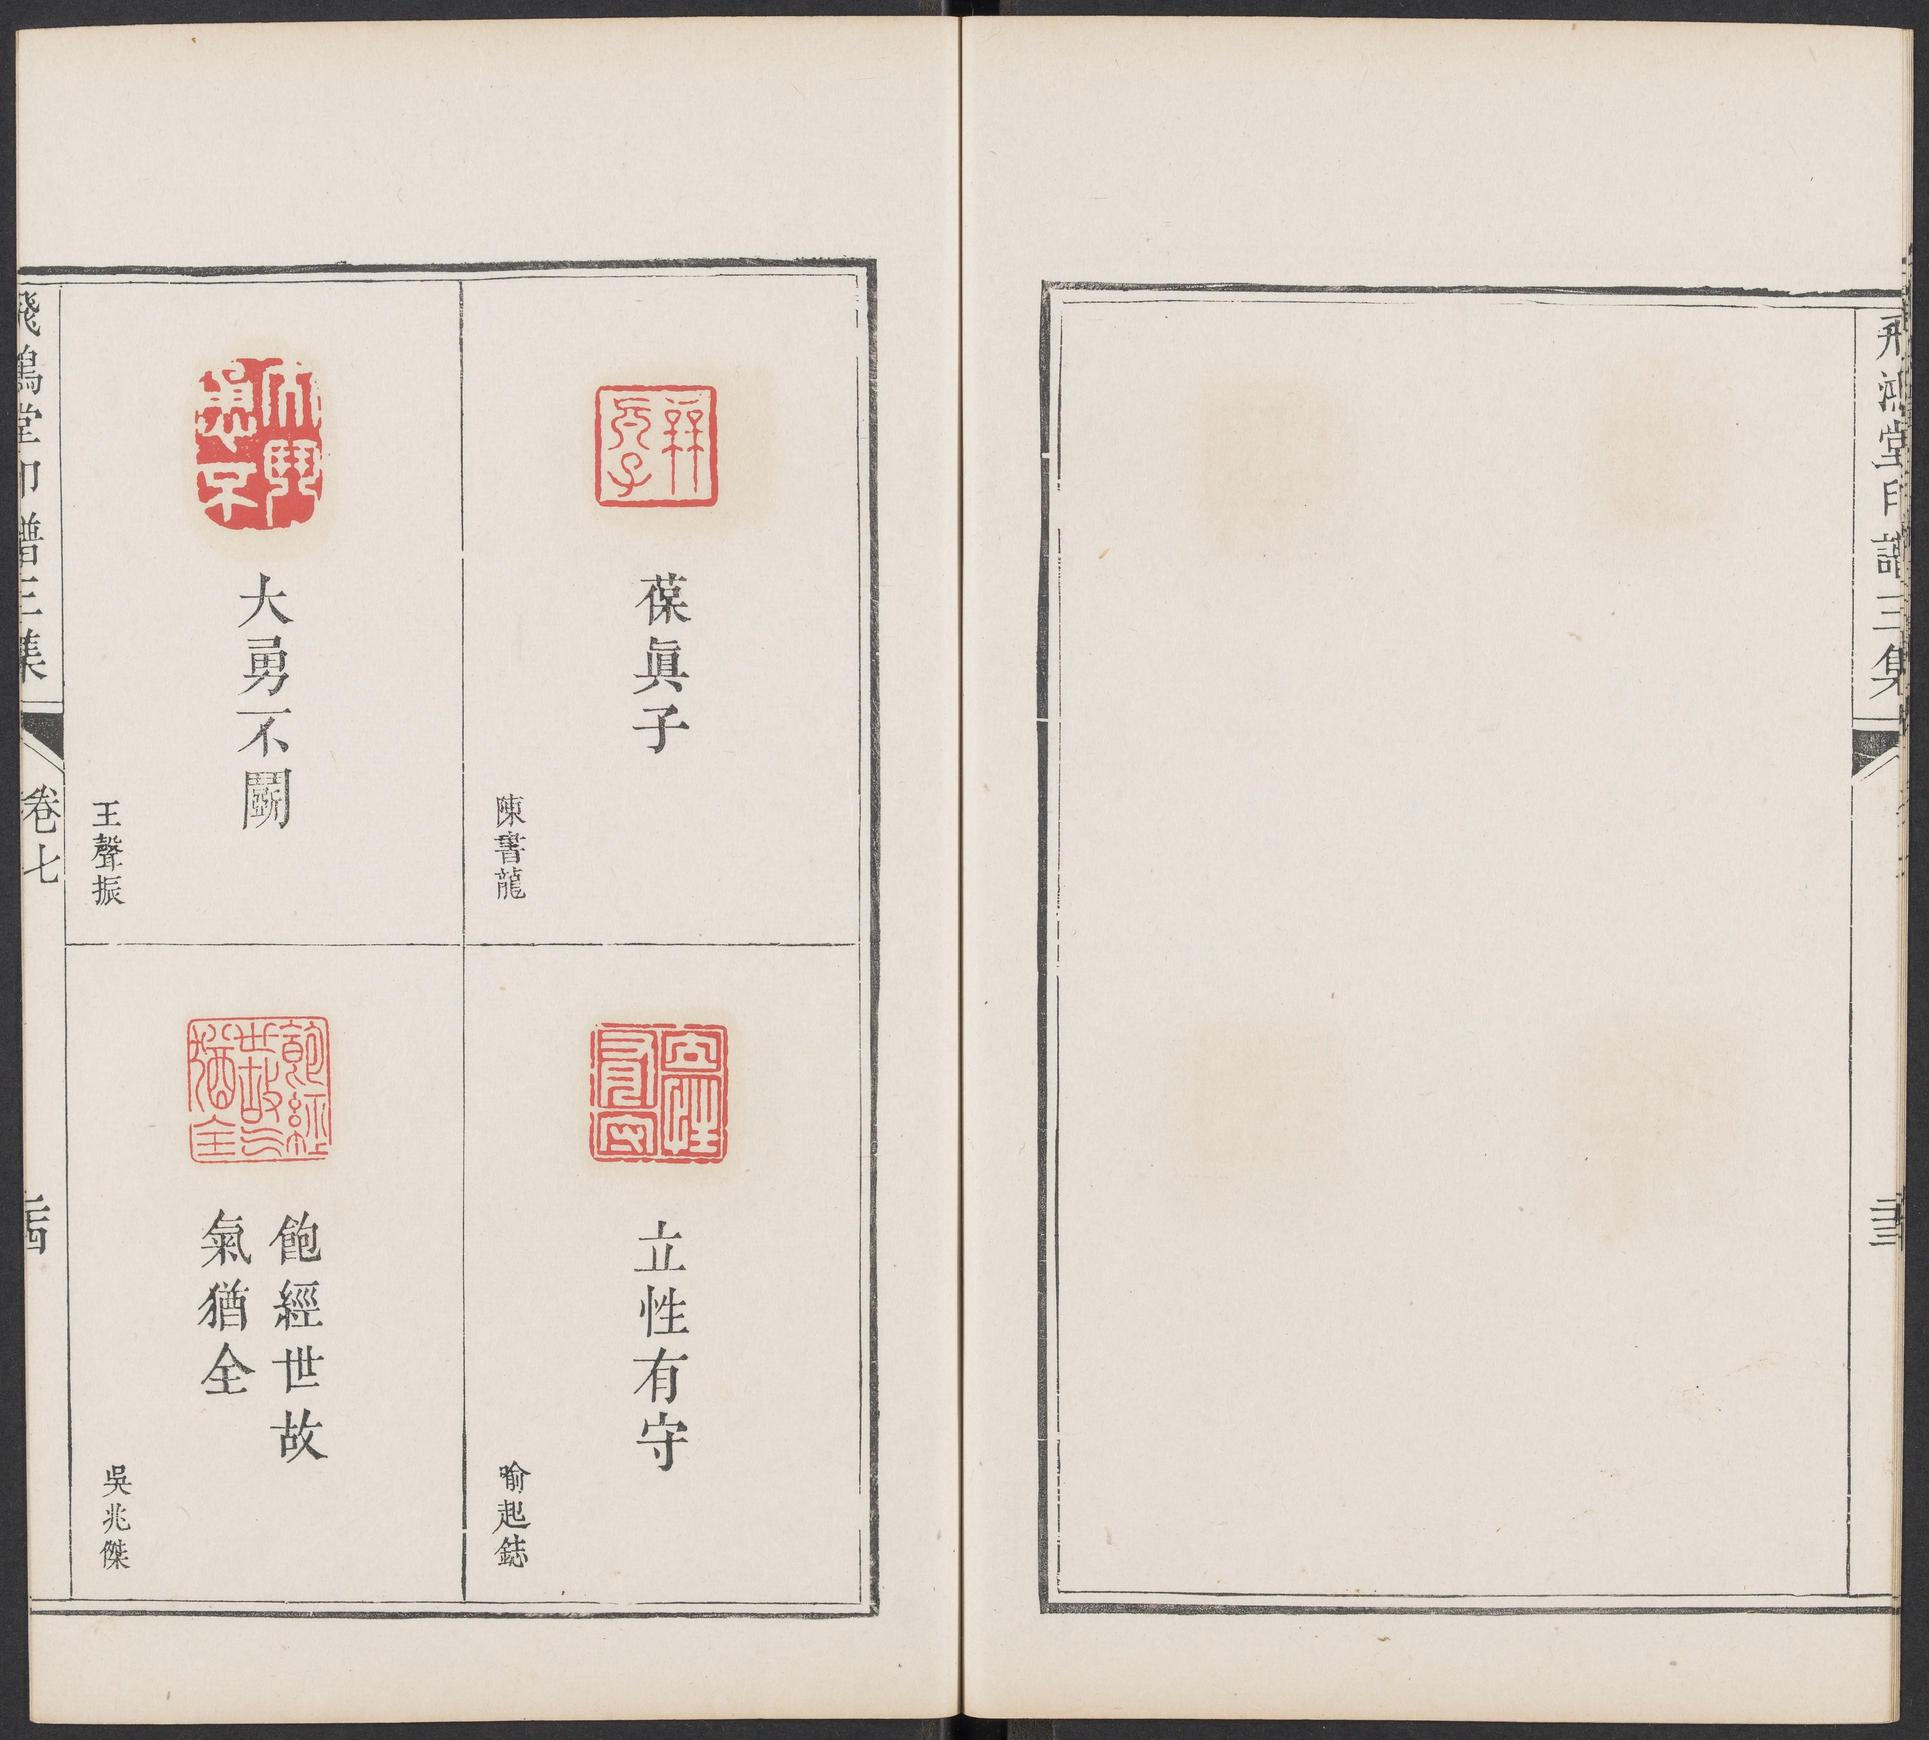 飛鴻堂印譜三集
葆眞子
陳書龍
立性有守
喻起鋕
大勇不鬬
王聲振
飽經世故
氣猶全
吳兆傑
飛鴻堂印譜三集
卷七